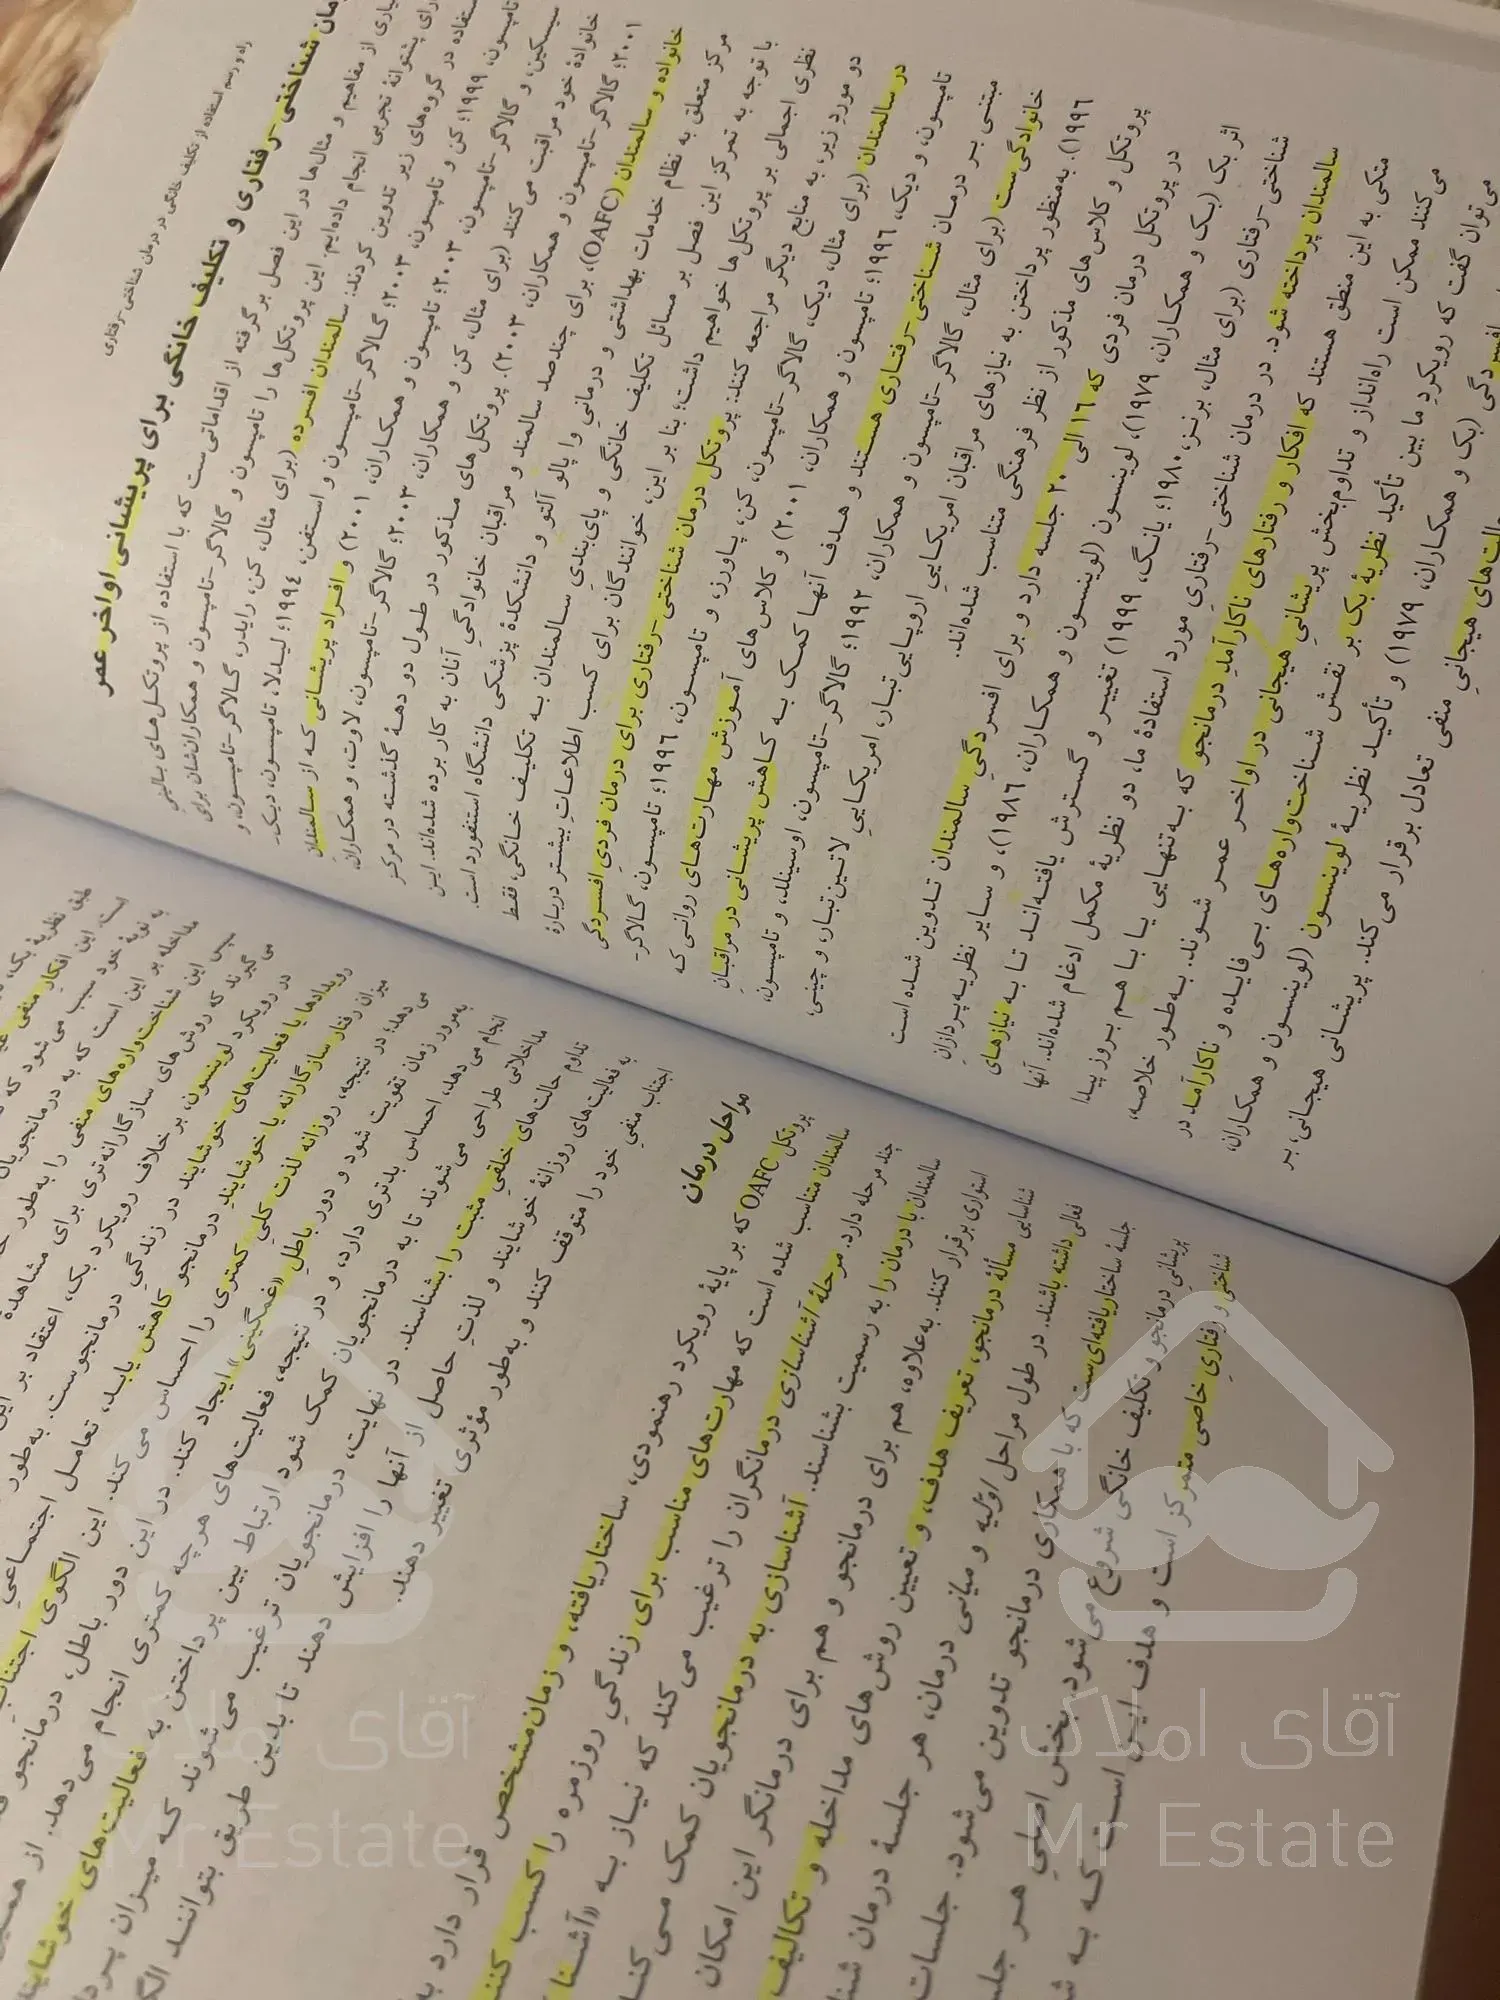 راه و رسم استفاده از تکلیف خانگی در درمان شناختی-رفتاری
شناختی-رفتاری و تکلیف خانگی برای پریشانی اواخر عمر
از مفاهیم و مثال‌ها در این فصل برگرفته از اقداماتی ست که با استفاده از پروتکل‌های بالینی
پشتوانهٔ تجربی انجام داده‌ایم. این پروتکل‌ها را تامپسون و گالاگر-تامپسون و همکاران‌شان برای
استفاده در گروه‌های زیر تدوین کردند: سالمندان افسرده (برای مثال، کن، رایدر، گالاگر-تامپسون، و
تامپسون، ۱۹۹۹؛ کن و تامپسون، ۲۰۰۳؛ گالاگر-تامپسون و استفن، ۱۹۹٤؛ لیدلا، تامپسون، دیک-
سیسکین، و گالاگر-تامپسون، ۲۰۰۳؛ تامپسون و همکاران، ۲۰۰۱) و افراد پریشانی که از سالمندان
خانوادهٔ خود مراقبت می‌کنند (برای مثال، کن و همکاران، ۲۰۰۳؛ گالاگر-تامپسون، لاوت، و همکاران،
۲۰۰۱؛ گالاگر-تامپسون و همکاران، ۲۰۰۳). پروتکل‌های مذکور در طول دو دههٔ گذشته در مرکز
خانواده و سالمندان (OAFC)، برای چندصد سالمند و مراقبان خانوادگی آنان به کار برده شده‌اند. این
مرکز متعلق به نظام خدمات بهداشتی و درمانی وا پالو آلتو و دانشکدهٔ پزشکی دانشگاه استنفورد است.
با توجه به تمرکز این فصل بر مسائل تکلیف خانگی و پای‌بندیِ سالمندان به تکلیف خانگی، فقط
نظری اجمالی بر پروتکل‌ها خواهیم داشت؛ بنا بر این، خوانندگان برای کسب اطلاعاتِ بیشتر دربارهٔ
دو مورد زیر، به منابع دیگر مراجعه کنند: پروتکل درمان شناختی-رفتاری برای درمان فردیِ افسردگی
در سالمندان (برای مثال، دیک، گالاگر-تامپسون، کن، پاورز، و تامپسون، ۱۹۹٦؛ تامپسون، گالاگر-
تامپسون، و دیک، ۱۹۹٦؛ تامپسون و همکاران، ۲۰۰۱) و کلاس‌های آموزش مهارت‌های روانی که
مبتنی بر درمان شناختی-رفتاری هستند و هدف آنها کمک به کاهش پریشانی در مراقبانِ
خانوادگی‌ست (برای مثال، گالاگر-تامپسون و همکاران، ۱۹۹۲؛ گالاگر-تامپسون، اوسینلد، و تامپسون،
۱۹۹٦). به‌منظور پرداختن به نیازهای مراقبان امریکاییِ اروپایی تبار، امریکاییِ لاتین‌تبار، و چینی،
پروتکل و کلاس‌های مذکور از نظر فرهنگی متناسب شده‌اند.
در پروتکل درمان فردی که ۱٦ الی ۲۰ جلسه دارد و برای افسردگیِ سالمندان تدوین شده است
اثر بک (بک و همکاران، ۱۹۷۹)، لوینسون (لوینسون و همکاران، ۱۹۸٦)، و سایر نظریه‌پردازانِ
شناختی-رفتاری (برای مثال، برنز، ۱۹۸۰؛ یانگ، ۱۹۹۹) تغییر و گسترش یافته‌اند تا به نیازهای
سالمندان پرداخته شود. در درمان شناختی-رفتاریِ مورد استفادهٔ ما، دو نظریهٔ مکمل ادغام شده‌اند. آنها
متکی به این منطق هستند که افکار و رفتارهای ناکارآمدِ درمانجو که به‌تنهایی یا با هم بروز پیدا
می‌کنند ممکن است راه‌انداز و تداوم‌بخش پریشانیِ هیجانی در اواخر عمر شوند. به‌طور خلاصه،
می‌توان گفت که رویکردِ ما بین تأکید نظریهٔ بک بر نقش شناخت‌واره‌های بی‌فایده و ناکارآمد در
افسردگی (بک و همکاران، ۱۹۷۹) و تأکید نظریهٔ لوینسون (لوینسون و همکاران،
حالت‌های هیجانیِ منفی تعادل برقرار می‌کند. پریشانی هیجانی، بر
طبق نظریهٔ بک،
است. این افکارِ منفی
به نوبهٔ خود سبب می‌شود که
مداخله بر این است که به درمانجویان
سپس این شناخت‌واره‌های منفی را به‌طور
می‌گیرند که روش‌های سازگارانه‌تری برای مشاهدهٔ
در رویکرد لوینسون، بر خلاف رویکرد بک، اعتقاد بر این
رویدادها یا فعالیت‌های خوشایند در زندگیِ درمانجوست. به‌طور
میزان رفتار سازگارانه یا خوشایندِ درمانجو کاهش یابد، تعامل اجتماعیِ
می‌دهد؛ در نتیجه، روزانه لذت کلیِ کمتری را احساس می‌کند. این الگوی اجتنابِ
به‌مرور زمان تقویت شود و دور باطلِ «غمگینی» ایجاد کند. در این دور باطل، درمانجو
انجام می‌دهد، احساس بدتری دارد، و در نتیجه، فعالیت‌های هرچه کمتری انجام می‌دهد. از
مداخلاتی طراحی می‌شوند تا به درمانجویان کمک شود ارتباط بین پرداختن به فعالیت‌های خوشایند
تداوم حالت‌های خلقیِ مثبت را بشناسند. در نهایت، درمانجویان ترغیب می‌شوند که میزان
به فعالیت‌های روزانهٔ خوشایند و لذتِ حاصل از آنها را افزایش دهند تا بدین طریق بتوانند
اجتناب منفیِ خود را متوقف کنند و به‌طور مؤثری تغییر دهند.
مراحل درمان
پروتکل OAFC که بر پایهٔ رویکرد رهنمودی، ساختاریافته، و زمان‌مشخص قرار دارد
سالمندان متناسب شده است که مهارت‌های مناسب برای زندگیِ روزمره را کسب کنند
چند مرحله دارد. مرحلهٔ آشناسازی درمانگران را ترغیب می‌کند که نیاز به «آشنا
سالمندان با درمان را به رسمیت بشناسند. آشناسازی به درمانجویان کمک می‌کند
استواری برقرار کنند. به‌علاوه، هم برای درمانجو و هم برای درمانگر این امکان
شناسایی مسألهٔ درمانجو، تعریف هدف، و تعیین روش‌های مداخله و تکالیف
فعالی داشته باشند. در طول مراحل اوّلیه و میانی درمان، هر جلسهٔ درمان
جلسهٔ ساختاریافته‌ای‌ست که با همکاری درمانجو تدوین می‌شود. جلسات
پریشانی درمانجو و تکلیف خانگی شروع می‌شود. بخش اصلیِ هر
شناختی و رفتاریِ خاصی متمرکز است و هدف این است که به
آقای املاک
Mr Estate
آقای املاک
Mr Estate